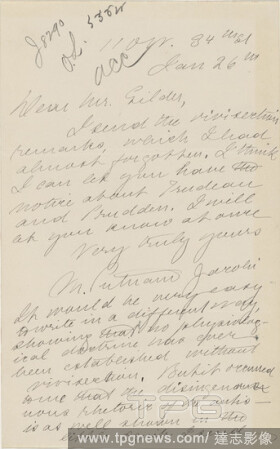 J8290
O.L. 5382
acc
110 W. 34th St
Jan 26th
Dear Mr. Gilder,
I send the vivisection
remarks, which I had
almost forgotten. I think
I can let you have the
notice about Trudeau
and Prudden. I will
let you know at once
Very truly yours
M. Putnam Jacobi
It would be very easy
to write in a different way,
showing that no physiolog-
ical doctrine has ever
been established without
vivisection. But it occurred
to me that the disingenuous
rhetoric
is as well shown in the
TPG
www.tpgnews.com/達志影像